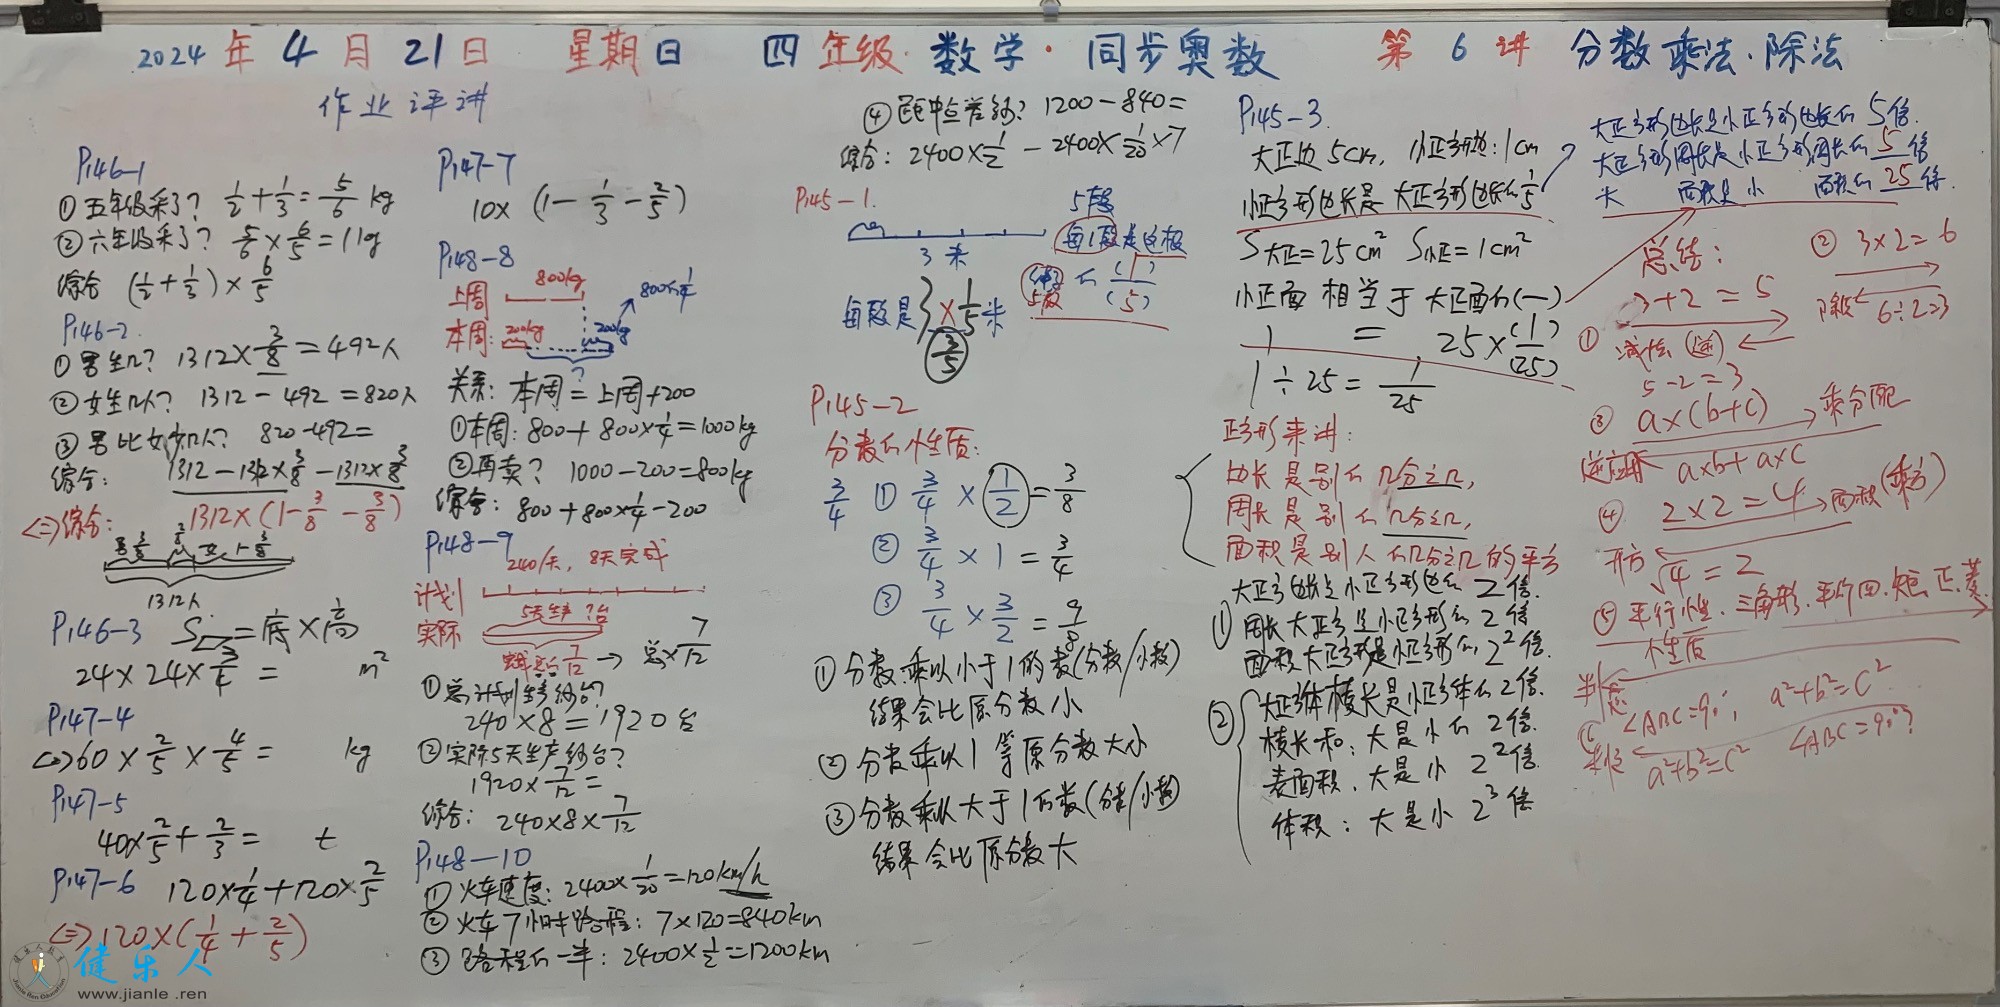 2024年4月21日 星期日 四年级·数学·同步奥数 第6讲 分数乘法·除法
作业评讲
P146-1
①五年级采了? 1/2+1/3=5/6 kg
②六年级采了? 5/6×6/5=1kg
综合 (1/2+1/3)×6/5
P146-2
①男生几? 1312×3/8=492人
②女生几人? 1312-492=820人
③男比女少几人? 820-492=
综合: 1312-1312×3/8-1312×3/8
<=>综合: 1312×(1-3/8-3/8)
1312人
P146-3 S▱=底×高
24×24×3/4= m²
P147-4
<=>60×2/5×4/5= kg
P147-5
40×2/5+2/3= t
P147-6 120×1/4+120×2/5
<=>120×(1/4+2/5)
健乐人
www.jianle.ren
P147-7
10×(1-1/3-2/5)
P148-8
上周 800kg
800的1/4
本周: 200kg 200kg
?
关系: 本周=上周+200
①本周: 800+800×1/4=1000kg
②再卖? 1000-200=800kg
综合: 800+800×1/4-200
P148-9
240/天, 8天完成
计划
实际 5天生产?台
7/12 → 总×7/12
①总计划生多少台?
240×8=1920台
②实际5天生产多少台?
1920×7/12=
综合: 240×8×7/12
P148-10
①火车速度: 2400×1/20=120km/h
②火车7小时路程: 7×120=840km
③路程的一半: 2400×1/2=1200km
④距中点差多少? 1200-840=
综合: 2400×1/2-2400×1/20×7
P145-1.
5段
3米
每1段是这根
5段 的 (1)/(5)
每段是 3×1/5米
3/5
P145-2
分数的性质:
3/4 ① 3/4×1/2=3/8
② 3/4×1=3/4
③ 3/4×3/2=9/8
①分数乘以小于1的数(分数/小数)
结果会比原分数小
②分数乘以1等原分数大小
③分数乘以大于1的数(分数/小数)
结果会比原分数大
P145-3.
大正边5cm, 小正方形边:1cm
小正方形边长是大正方形边长的1/5
S大正=25cm² S小正=1cm²
小正面相当于大正面的(—)
1 = 25×(1)/(25)
1÷25=1/25
正方形来讲:
边长是别的几分之几,
周长是别的几分之几,
面积是别人的几分之几的平方
大正方边长是小正方形边的2倍.
①周长大正方是小正方形的2倍
面积大正方形是小正方形的2²倍.
②大正方体棱长是小正方体的2倍.
棱长和: 大是小的2倍.
表面积, 大是小2²倍.
体积: 大是小2³倍
大正方形边长是小正方形边长的5倍.
大正方形周长是小正方形周长的5倍
大 面积是小 面积的25倍.
总结:
① 3+2=5
减法(逆)
5-2=3
② 3×2=6
除 6÷2=3
③ a×(b+c) → 乘分配
逆应用 a×b+a×c
④ 2×2=4 → 面积(乘方)
开方 √4=2
⑤平行性.三角形.平行四.矩.正.菱.
性质
判定
⑥ ∠ABC=90°; a²+b²=c²
a²+b²=c² ∠ABC=90°?